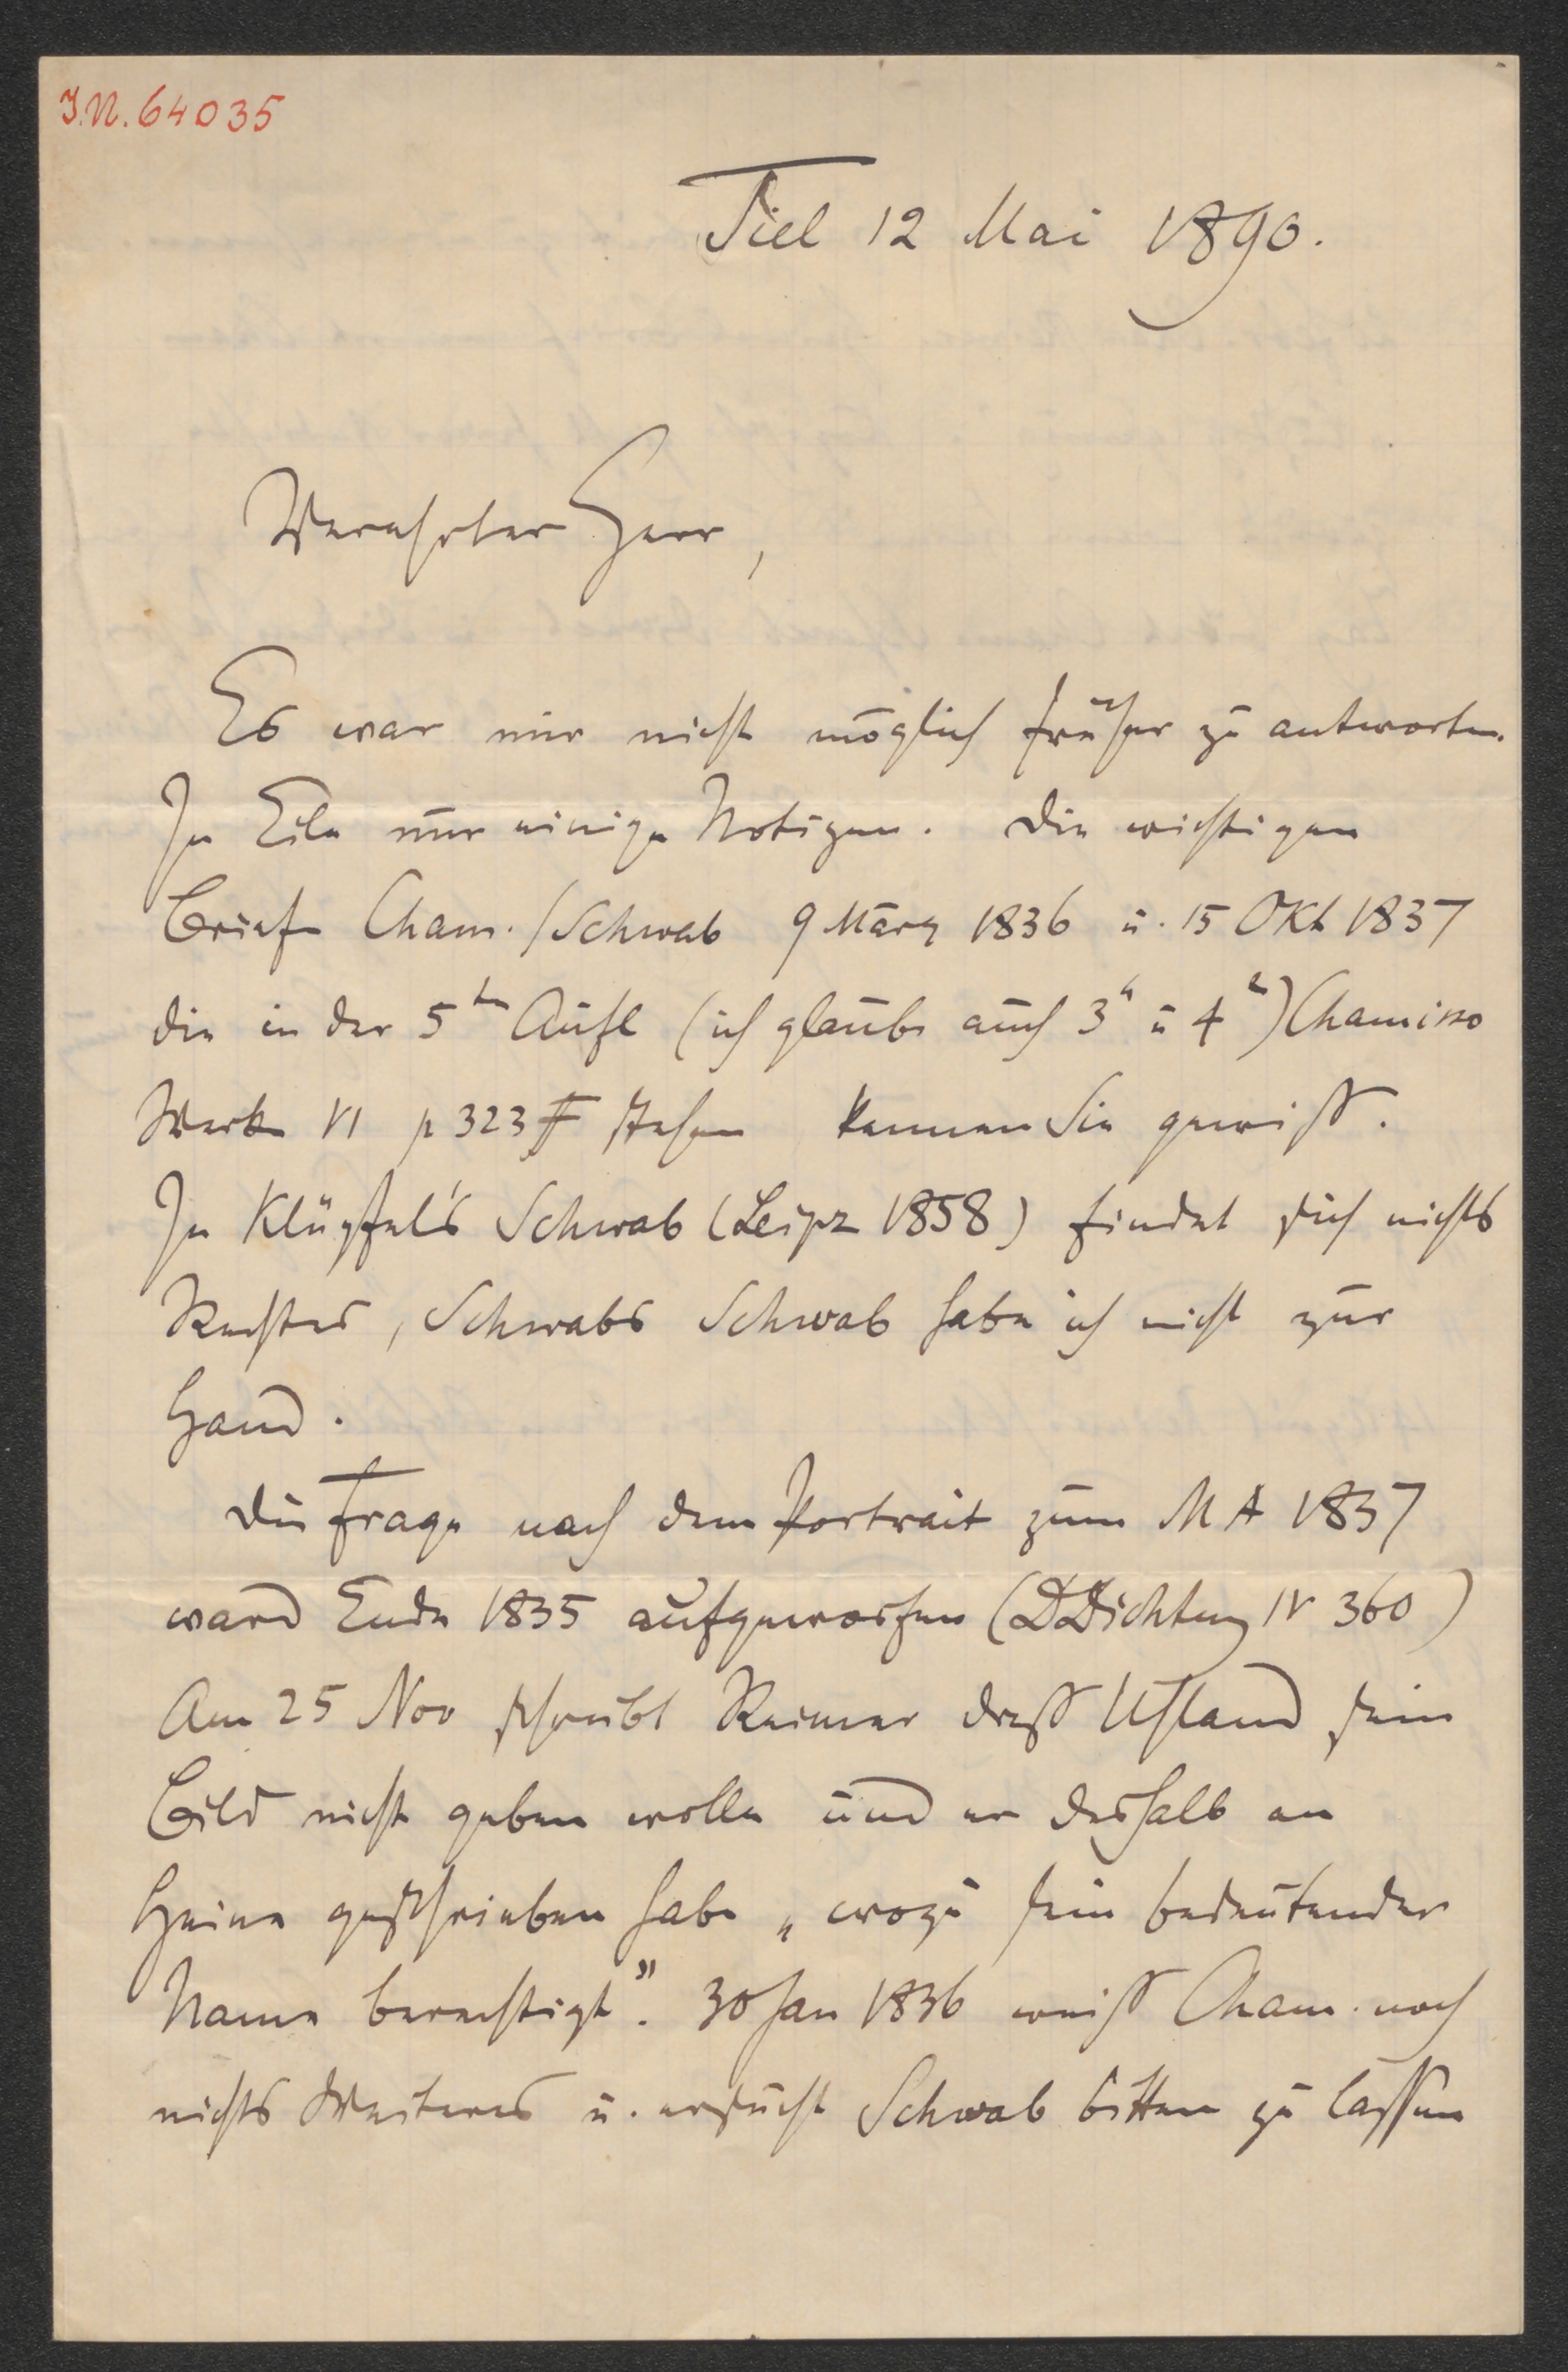 I.N. 64035
Tiel 12 Mai 1890.
Verehrter Herr,
Es war mir nicht möglich früher zu antworten.
In Eile nur einige Notizen. Die wichtigen
Briefe Cham./Schwab 9 März 1836 u. 15 Okt 1837
die in der 5ten Aufl (ich glaube auch 3n u 4n) Chamisso
Werke VI p 323 ff stehen kennen Sie gewiß.
In Klüpfel's Schwab (Leipz 1858) findet sich nichts
Rechtes, Schwabs Schwab habe ich nicht zur
Hand.
Die Frage nach dem Portrait zum MA 1837
ward Ende 1835 aufgeworfen (DDichtung IV 360)
Am 25 Nov schreibt Reimer dass Uhland sein
Bild nicht geben wolle und er deshalb an
Heine geschrieben habe „wozu sein bedeutender
Name berechtigt". 30 Jan 1836 weiß Cham. noch
nichts Weiteres u. ersucht Schwab bitten zu lassen